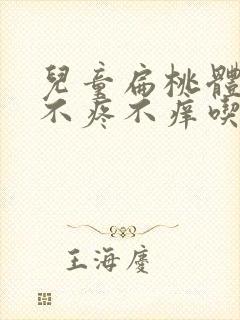 兒童扁桃體
不疼不痒喫
王海慶